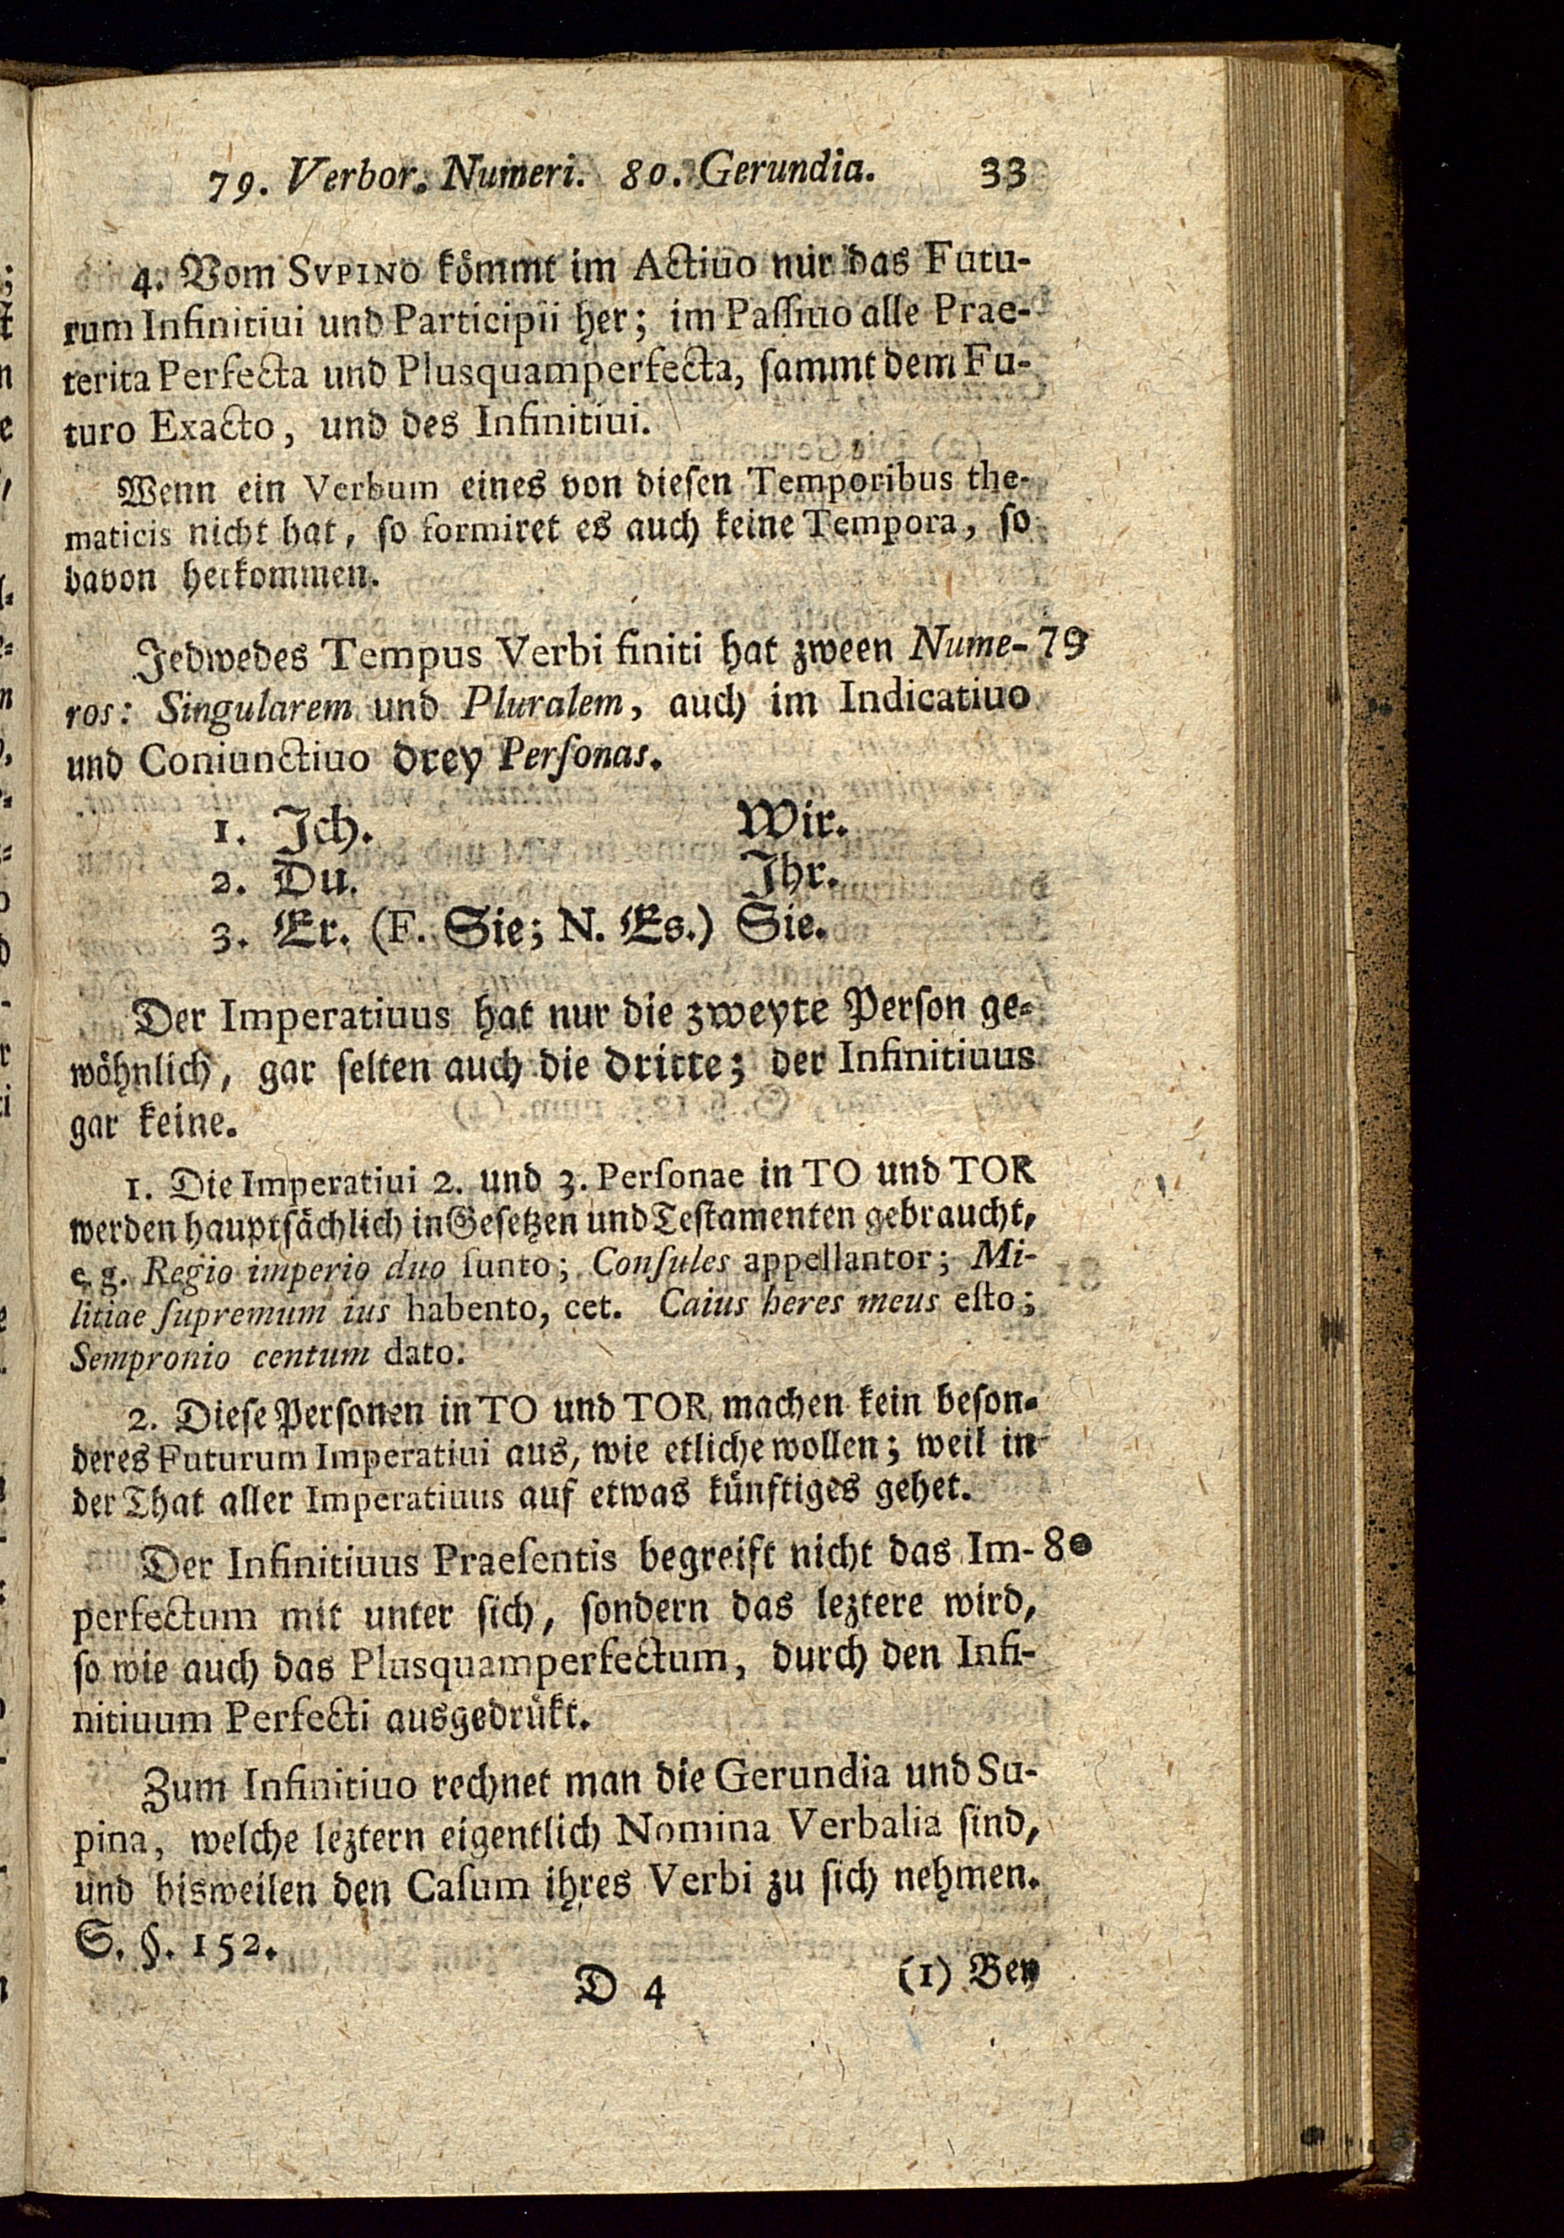 79. Verbor. Numeri. 80. Gerundia. 33
4. Vom SVPINO kömmt im Actiuo nur das Futu-
rum Infinitiui und Participii her; im Paſſiuo alle Prae-
terita Perfecta und Plusquamperfecta, ſammt dem Fu-
turo Exacto, und des Infinitiui.
Wenn ein Verbum eines von dieſen Temporibus the-
maticis nicht hat, ſo formiret es auch keine Tempora, ſo
davon herkommen.
Jedwedes Tempus Verbi finiti hat zween Nume- 79
ros: Singularem und Pluralem, auch im Indicatiuo
und Coniunctiuo drey Perſonas.
1. Ich. Wir.
2. Du. Ihr.
3. Er. (F. Sie; N. Es.) Sie.
Der Imperatiuus hat nur die zweyte Perſon ge-
wöhnlich, gar ſelten auch die dritte; der Infinitiuus
gar keine.
1. Die Imperatiui 2. und 3. Perſonae in TO und TOR
werden hauptſächlich in Geſetzen und Teſtamenten gebraucht,
e. g. Regio imperio duo ſunto; Conſules appellantor; Mi-
litiae ſupremum ius habento, cet. Caius heres meus eſto;
Sempronio centum dato.
2. Dieſe Perſonen in TO und TOR machen kein beſon-
deres Futurum Imperatiui aus, wie etliche wollen; weil in
der That aller Imperatiuus auf etwas künftiges gehet.
Der Infinitiuus Praeſentis begreift nicht das Im- 80
perfectum mit unter ſich, ſondern das leztere wird,
ſo wie auch das Plusquamperfectum, durch den Infi-
nitiuum Perfecti ausgedrükt.
Zum Infinitiuo rechnet man die Gerundia und Su-
pina, welche leztern eigentlich Nomina Verbalia ſind,
und bisweilen den Caſum ihres Verbi zu ſich nehmen.
S. §. 152.
D 4 (1) Bey